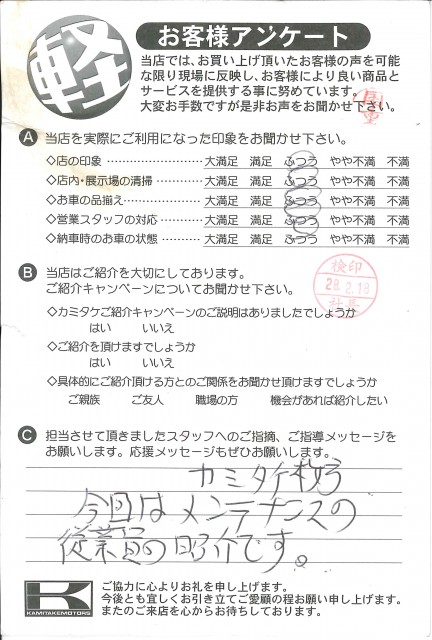 軽
お客様アンケート
当店では、お買い上げ頂いたお客様の声を可能
な限り現場に反映し、お客様により良い商品と
サービスを提供する事に努めています。
大変お手数ですが是非お声をお聞かせ下さい。
A 当店を実際にご利用になった印象をお聞かせ下さい。
◇店の印象 …………………… 大満足 満足 ふつう やや不満 不満
◇店内・展示場の清掃 ………… 大満足 満足 ふつう やや不満 不満
◇お車の品揃え ………………… 大満足 満足 ふつう やや不満 不満
◇営業スタッフの対応 ………… 大満足 満足 ふつう やや不満 不満
◇納車時のお車の状態 ………… 大満足 満足 ふつう やや不満 不満
B 当店はご紹介を大切にしております。
ご紹介キャンペーンについてお聞かせ下さい。
検印
28.2.18
社長
◇カミタケご紹介キャンペーンのご説明はありましたでしょうか
はい いいえ
◇ご紹介を頂けますでしょうか
はい いいえ
◇具体的にご紹介頂ける方とのご関係をお聞かせ頂けますでしょうか
ご親族 ご友人 職場の方 機会があれば紹介したい
C 担当させて頂きましたスタッフへのご指摘、ご指導メッセージを
お願いします。応援メッセージもぜひお願いします。
カミタケ
今回はメンテナンスの
従業員の紹介です。
K
KAMITAKEMOTORS
ご協力に心よりお礼を申し上げます。
今後とも宜しくお引き立てご愛顧の程お願い申し上げます。
またのご来店を心からお待ちしております。